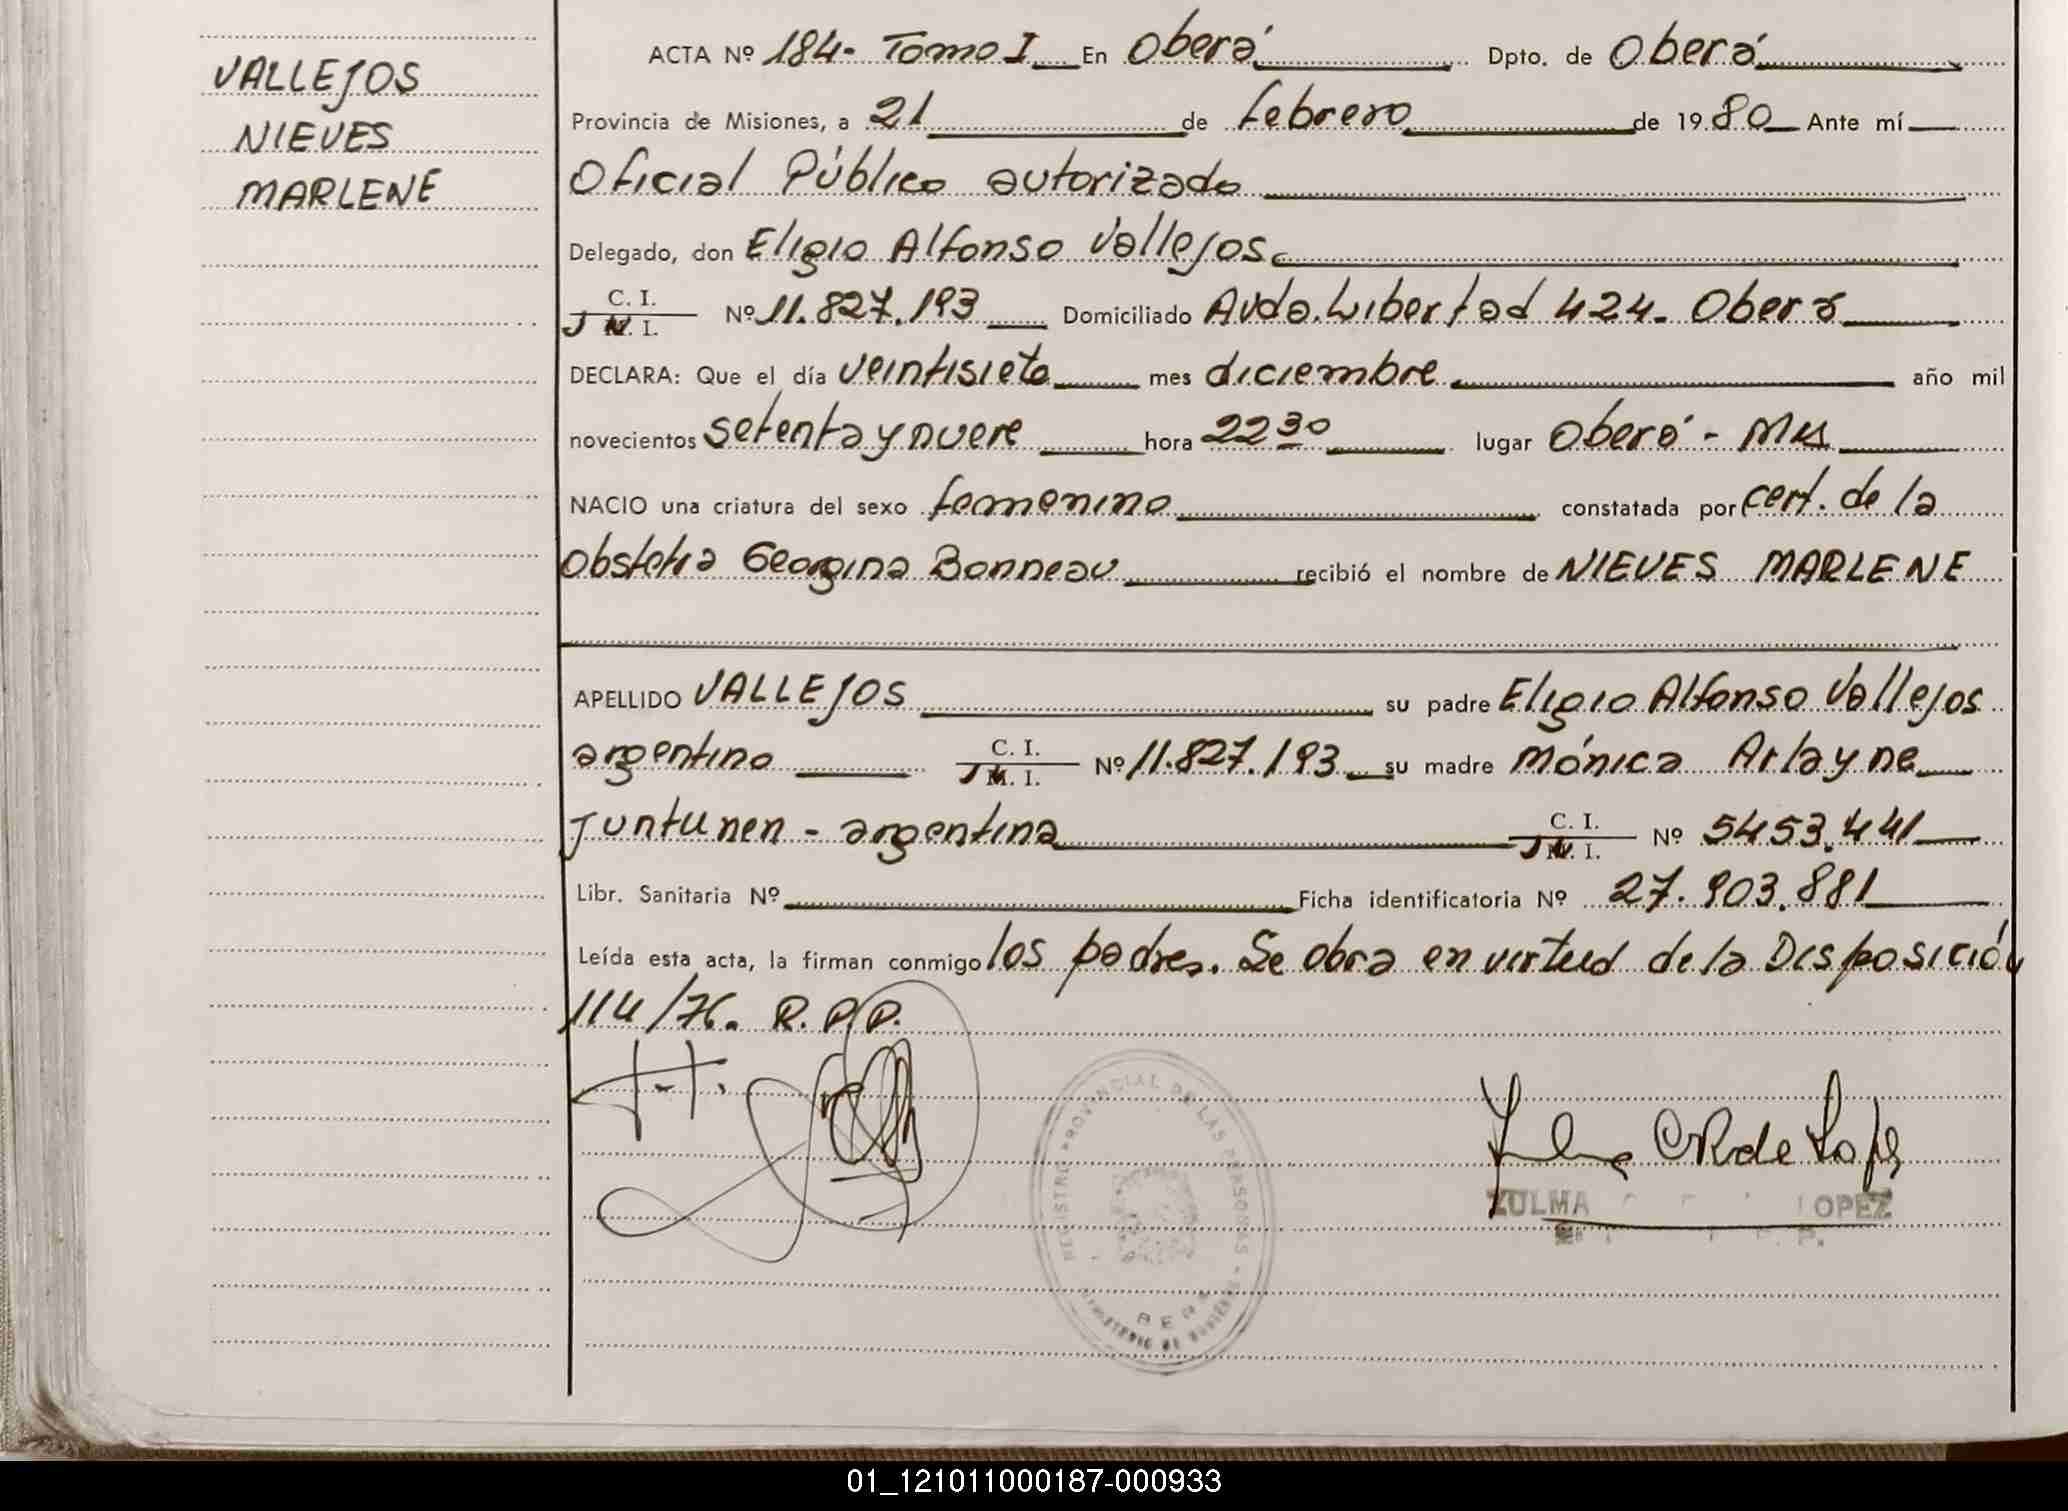 VALLEJOS
NIEVES
MARLENE
ACTA Nº 184- Tomo I En Oberá Dpto. de Oberá
Provincia de Misiones, a 21 de febrero de 1980 Ante mí
Oficial Público autorizado
Delegado, don Eligio Alfonso Vallejos
C. I.
M. I. Nº 11.827.193 Domiciliado Avda. Libertad 424- Oberá
DECLARA: Que el día veintisiete mes diciembre año mil
novecientos setenta y nueve hora 22 30 lugar Oberá - Mns
NACIO una criatura del sexo femenino constatada por cert. de la
Obstetra Georgina Bonneau recibió el nombre de NIEVES MARLENE
APELLIDO VALLEJOS su padre Eligio Alfonso Vallejos
argentino C. I. M. I. Nº 11.827.193 su madre Mónica Arlayne
Juntunen - argentina C. I. M. I. Nº 5453.441
Libr. Sanitaria Nº Ficha identificatoria Nº 27.903.881
Leída esta acta, la firman conmigo los padres. Se obra en virtud de la Disposición
114/76. R.P.P.
REGISTRO PROVINCIAL DE LAS PERSONAS
MINISTERIO DE GOBIERNO
ZULMA LOPEZ
01_121011000187-000933